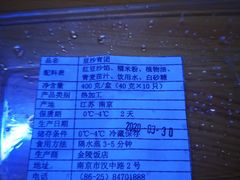 品名 豆沙青团
配料表 红豆沙馅、糯米粉、植物油、
青麦茬汁、饮用水、白砂糖
净含量 400克/盒（40克×10只）
产品类别 热加工
产地 江苏 南京
保质期 0℃-4℃ 2天
生产日期 2020-03-30
储存条件 0℃-4℃ 冷藏保存
食用方法 隔水蒸 3-5 分钟
出品 金陵饭店
地址 南京市汉中路2号
电话 (86-25) 84701888